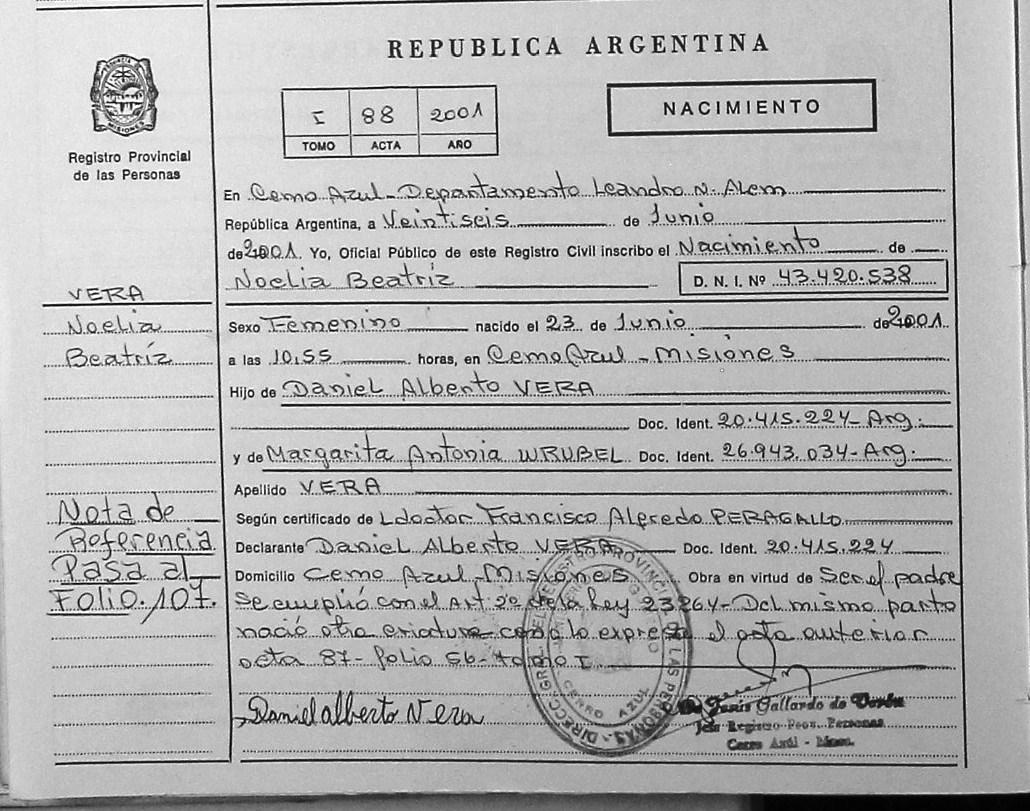 REPUBLICA ARGENTINA
PROVINCIA
MISIONES
Registro Provincial
de las Personas
I 88 2001
TOMO ACTA AÑO
NACIMIENTO
En Cerro Azul - Departamento Leandro N. Alem
República Argentina, a Veintiseis de Junio
de 2001. Yo, Oficial Público de este Registro Civil inscribo el Nacimiento de
Noelia Beatríz D. N. I. Nº 43.420.538
VERA
Noelia
Beatríz
Sexo Femenino nacido el 23 de Junio de 2001
a las 10,55 horas, en Cerro Azul - Misiones
Hijo de Daniel Alberto VERA
Doc. Ident. 20.415.224 - Arg.
y de Margarita Antonia WRUBEL Doc. Ident. 26.943.034 - Arg.
Apellido VERA
Según certificado de L doctor Francisco Alfredo PERAGALLO
Declarante Daniel Alberto VERA Doc. Ident. 20.415.224
Domicilio Cerro Azul - Misiones Obra en virtud de Ser el padre
Se cumplió con el Art 2º de la Ley 23264 - Del mismo parto
nació otra criatura como lo expresa el acta anterior
acta 87 - folio 56 - tomo I
Nota de
Referencia
Pasa al
Folio 107.
Daniel alberto Vera
DIRECC. GRAL. DEL REGISTRO PROVINCIAL DE LAS PERSONAS
CERRO AZUL
Gallardo de
Jefe Registro Prov. Personas
Cerro Azúl - Mnes.